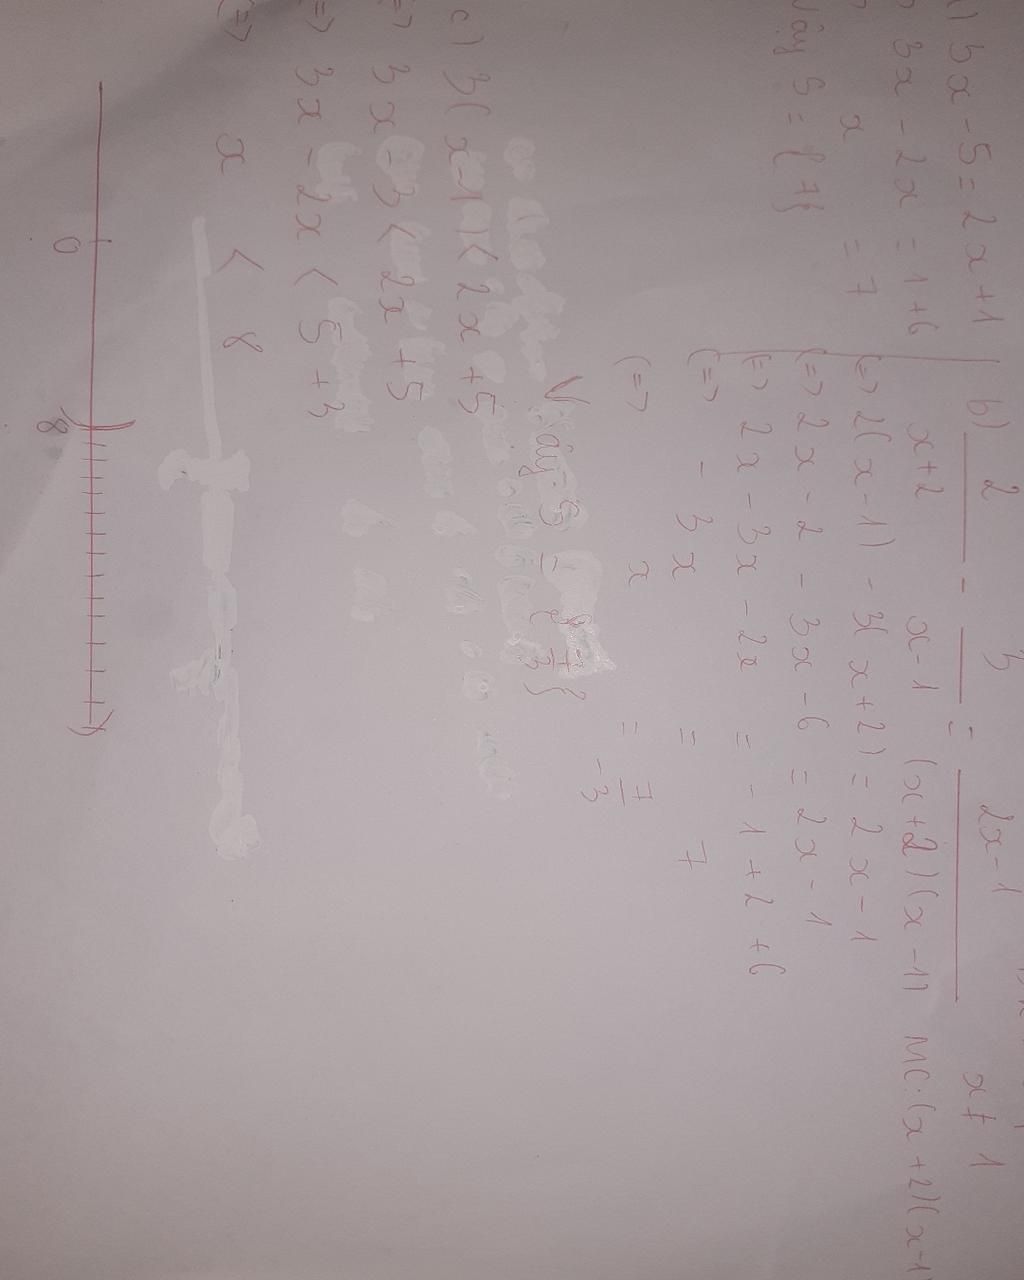 3x - 5 = 2x + 1
3x - 2x = 1 + 6
x = 7
Vậy S = { 7 }
b) 2/(x+2) - 3/(x-1) = (2x-1)/((x+2)(x-1))
x ≠ 1
MC: (x+2)(x-1
(=) 2(x-1) - 3(x+2) = 2x-1
(=) 2x - 2 - 3x - 6 = 2x - 1
(=) 2x - 3x - 2x = -1 + 2 + 6
(=) - 3x = 7
(=) x = 7/-3
Vậy S = { 7/3 }
c) 3(x-1) < 2x + 5
(=) 3x - 3 < 2x + 5
(=) 3x - 2x < 5 + 3
(=) x < 8
0 8